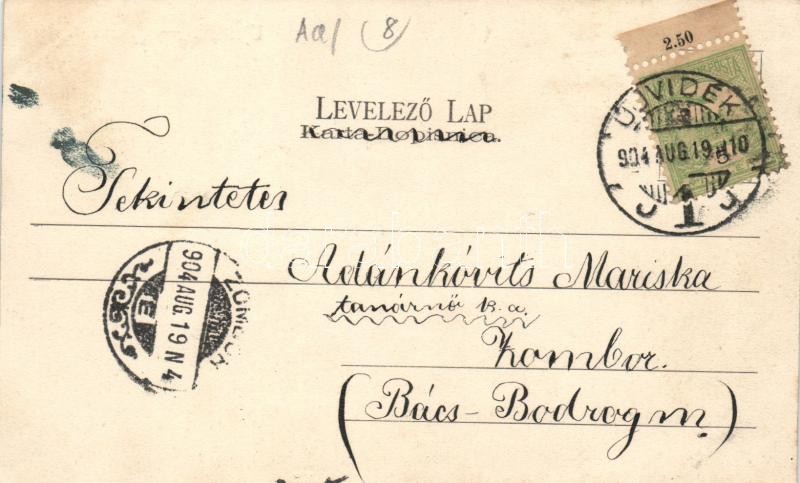 Aa/ (8)
2.50
LEVELEZŐ LAP
Karta Dopisnica.
UJVIDÉK
904 AUG. 19
Tekintetes
Adánkóvits Mariska
tanárnő k.a.
Zombor.
(Bács-Bodrog m.)
ZOMBOR
904 AUG 19 N 4